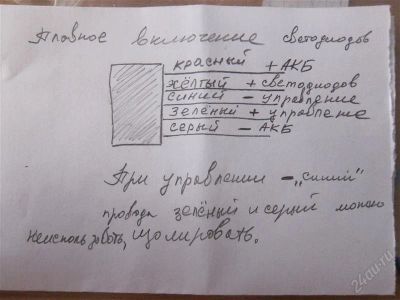 Плавное включение светодиодов
красный + АКБ
жёлтый + светодиодов
синий - управление
зелёный + управление
серый - АКБ
При управлении - "синий"
провода зелёный и серый можно
неиспользовать, изолировать.
24au.ru